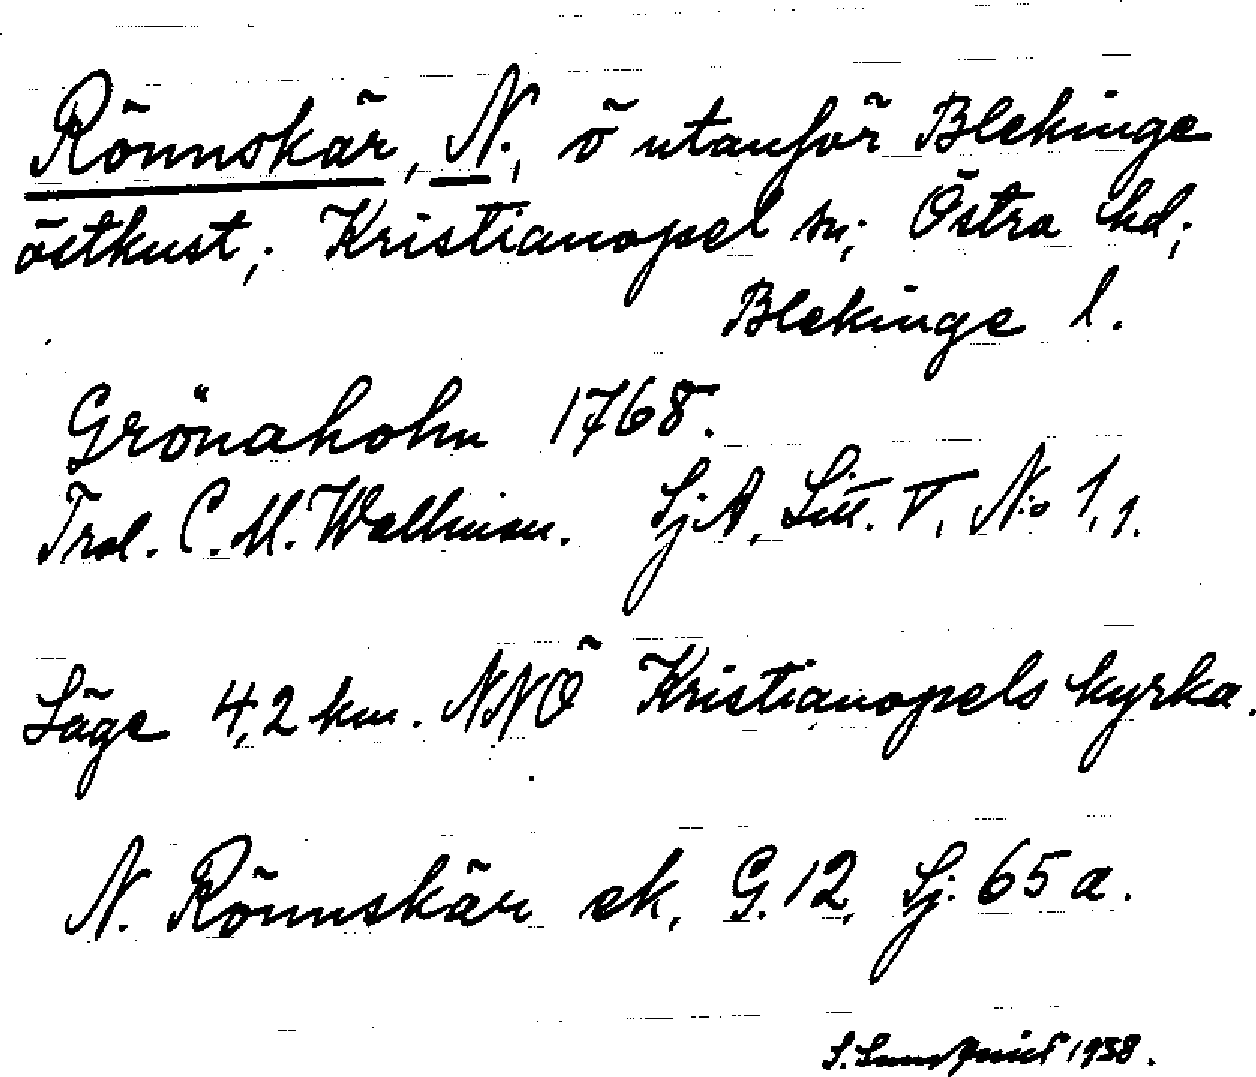 Rönnskär, N., ö utanför Blekinge
östkust; Kristianopel sn; Östra hd;
Blekinge l.
Grönaholm 1768.
Trol. C. M. Wallman. Sj.A, Litt. V, N:o 1,1.
Läge 4,2 km. NNÖ Kristianopels kyrka.
N. Rönnskär ek, G.12, Sj. 65 a.
1938.